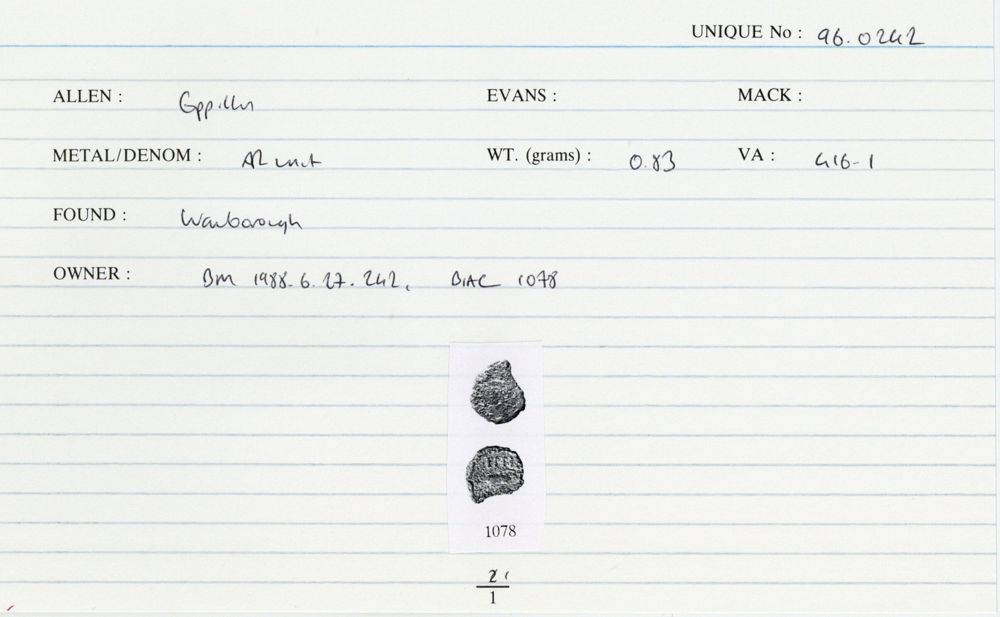 UNIQUE No : 96.0242
ALLEN : Eppillus EVANS : MACK :
METAL/DENOM : AR unit WT. (grams) : 0.83 VA : 416-1
FOUND : Wanborough
OWNER : BM 1988.6.27.242, BIAC 1078
1078
1